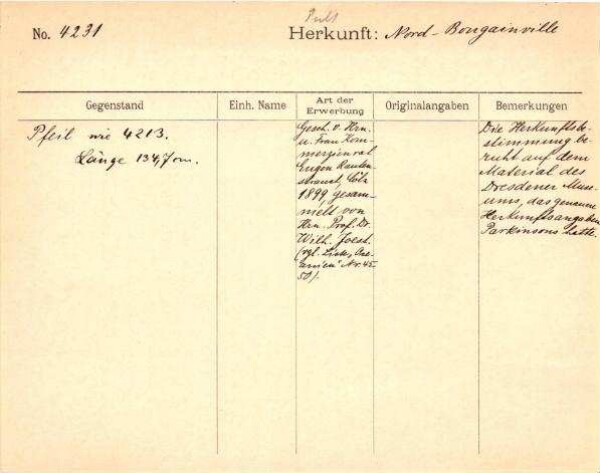 Pult
No. 4231
Herkunft: Nord-Bougainville
Gegenstand
Einh. Name
Art der
Erwerbung
Originalangaben
Bemerkungen
Pfeil wie 4213.
Länge 134,7 cm.
Gesch. v. Hrn.
u. Frau Kom-
merzienrat
Eugen Rauten-
strauch, Cöln
1899, gesam-
melt von
Hrn. Prof. Dr.
Wilh. Joest.
(vgl. Liste, Oze-
anien" Nr. 45-
50).
Die Herkunftsbe-
stimmung be-
ruht auf dem
Material des
Dresdener Muse-
ums, das genauere
Herkunftsangaben
Parkinsons hatte.